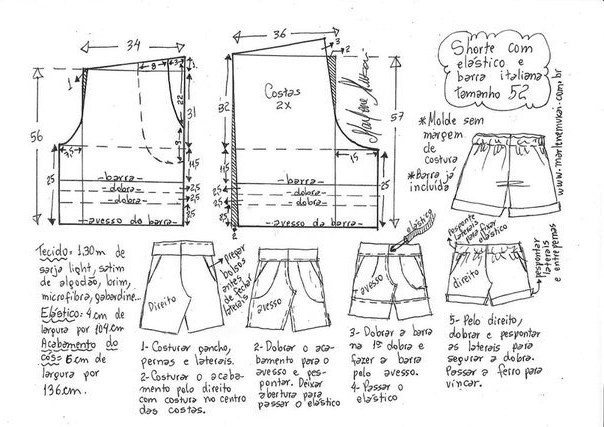 34
36
Shorte com
elástico e
barra italiana
tamanho 52
www.marlenemukai.com.br
Marlene Mukai
1
8
3
1,5
22
31
3
56
7,5
25
11,5
2,5
2,5
8,5
barra
dobra
dobra
avesso da barra
3
2
Costas
2X
32
57
15
25
11,5
2,5
2,5
8,5
2
barra
dobra
dobra
avesso da barra
*Molde sem
margem
de
costura
*Barra já
incluida
Tecido= 1.30m de
sarja light, satim
de algodão, brim,
microfibra, gabardine...
Elástico= 4cm de
largura por 104cm
Acabamento do
cós= 6cm de
largura por
136cm.
Direito
pregar
bolsos
antes
de fechar
laterais
avesso
elástico
avesso
pesponte
laterais
para fixar
elástico
direito
pespontar
laterais
e entrepernas
1- Costurar gancho,
pernas e laterais.
2- Costurar o acaba-
mento pelo direito
com costura no centro
das costas.
2- Dobrar o aca-
bamento para o
avesso e pes-
pontar. Deixar
abertura para
passar o elástico
3- Dobrar a barra
na 1ª dobra e
fazer a barra
pelo avesso.
4- Passar o
elástico
5- Pelo direito,
dobrar e pespontar
as laterais para
segurar a dobra.
Passar a ferro para
vincar.